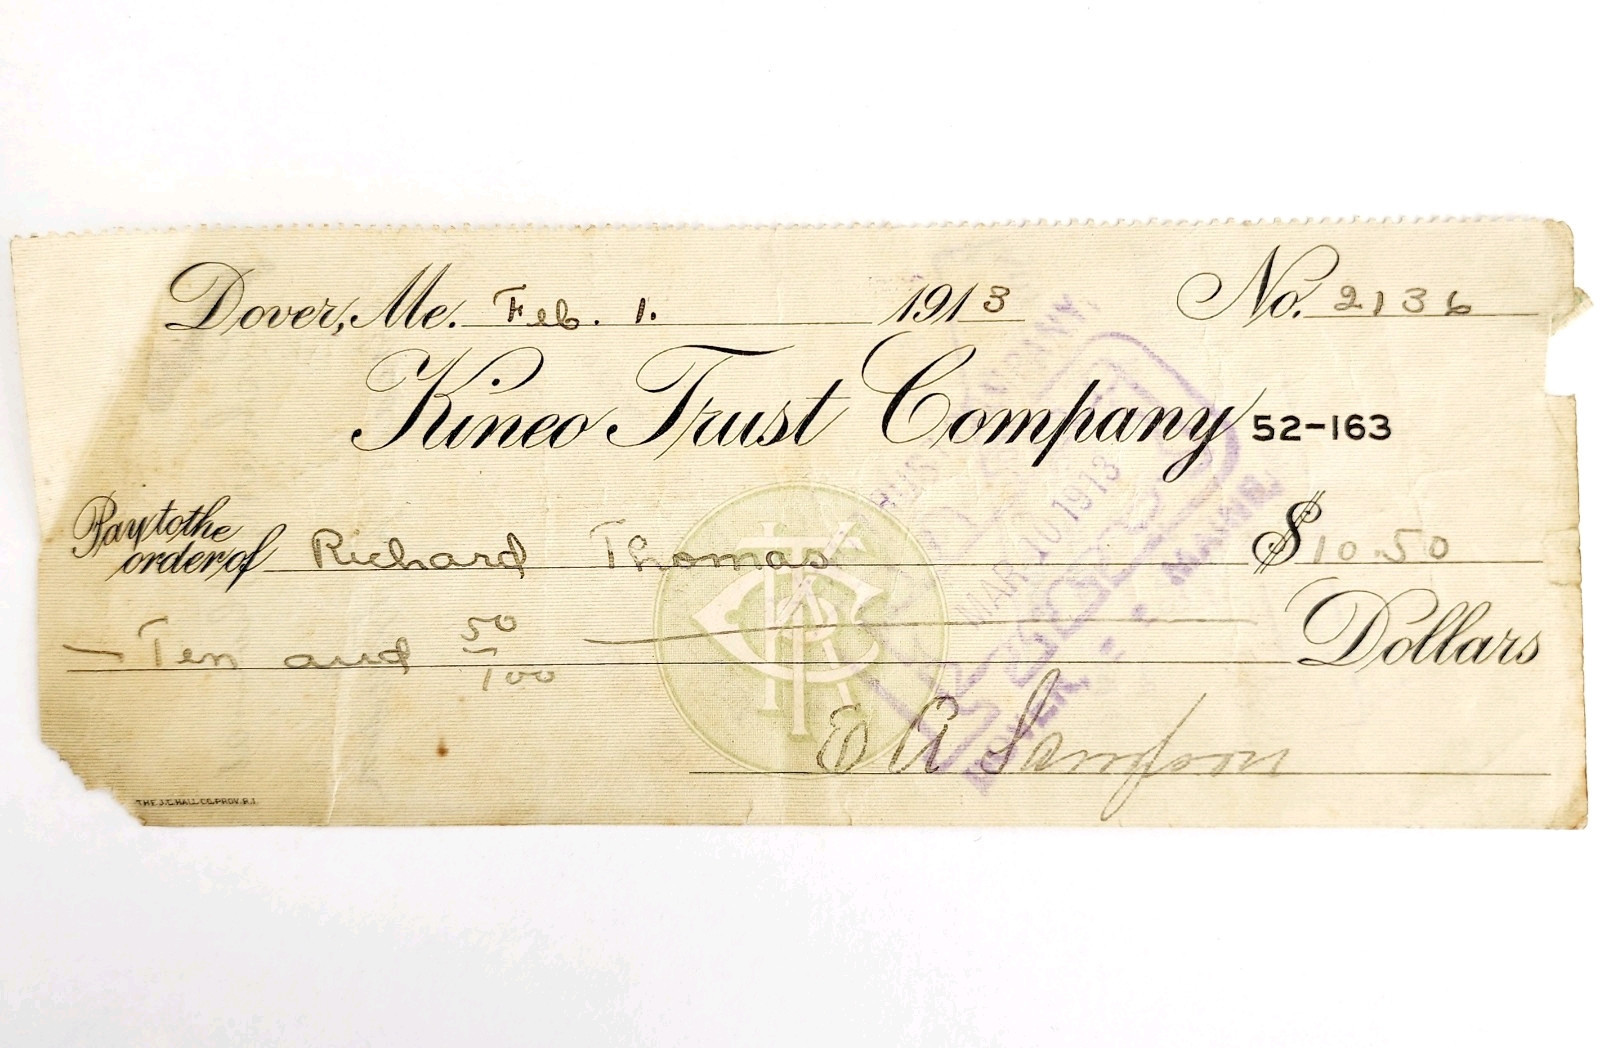 Dover, Me. Feb. 1. 1913 No. 2136
Kineo Trust Company 52-163
Pay to the
order of Richard Thomas $10.50
Ten and 50/100 Dollars
E A Sampson
TRUST COMPANY,
MAR 10 1913
DOVER, MAINE.
KTC
THE J.C. HALL CO. PROV. R.I.